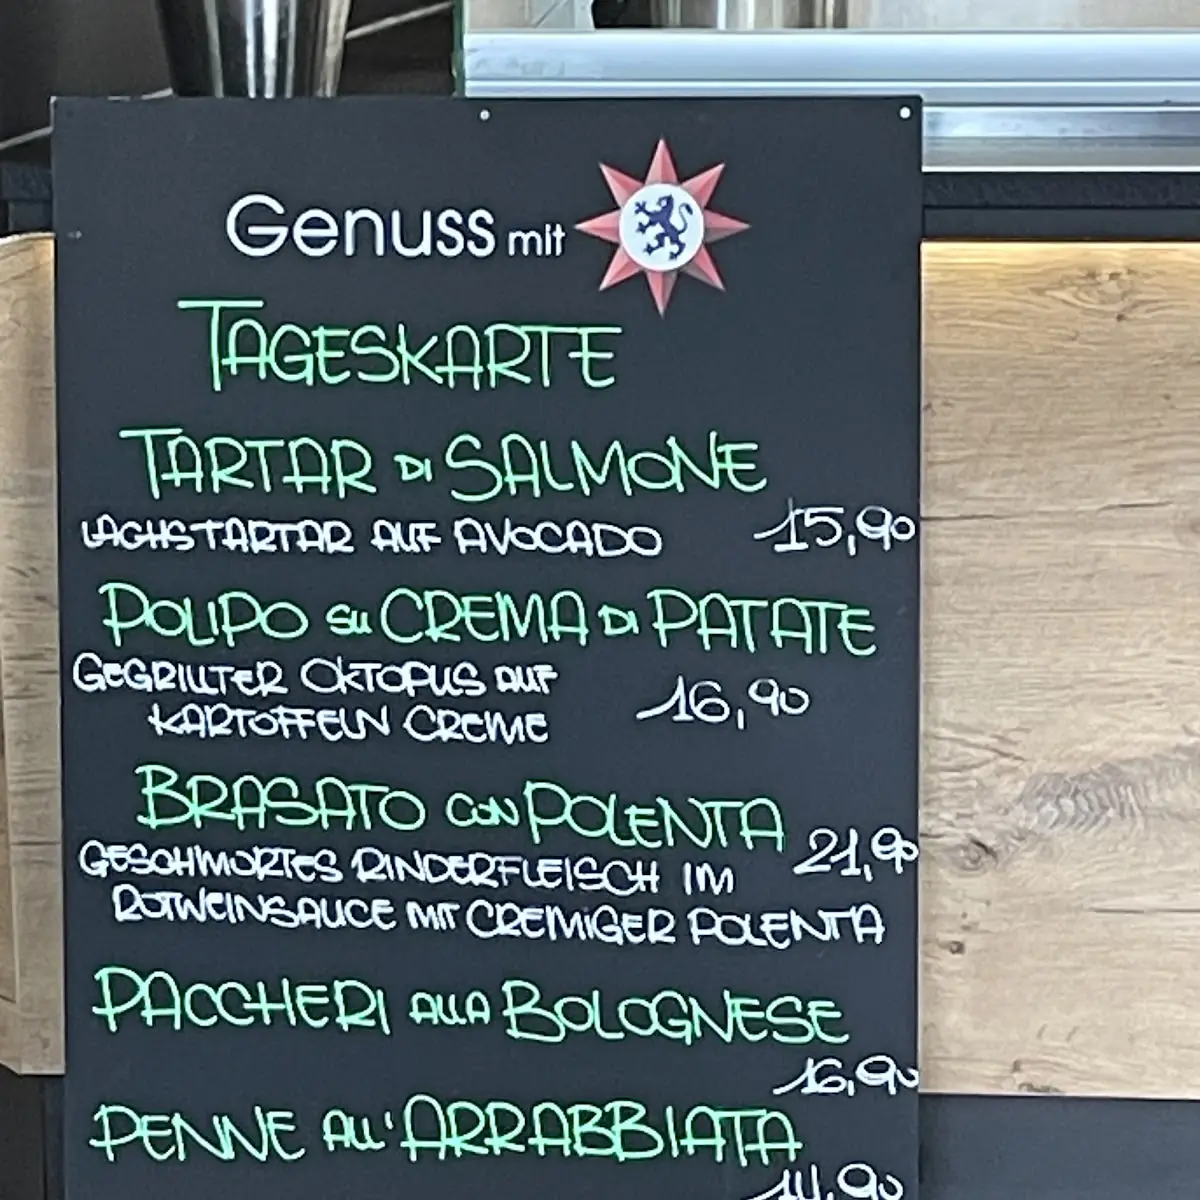 Genuss mit
TAGESKARTE
TARTAR DI SALMONE
LACHSTARTAR AUF AVOCADO 15,90
POLIPO SU CREMA DI PATATE
GEGRILLTER OKTOPUS AUF
KARTOFFELN CREME 16,90
BRASATO CON POLENTA
GESCHMORTES RINDERFLEISCH IM 21,90
ROTWEINSAUCE MIT CREMIGER POLENTA
PACCHERI ALLA BOLOGNESE
16,90
PENNE ALL'ARRABBIATA
14,90